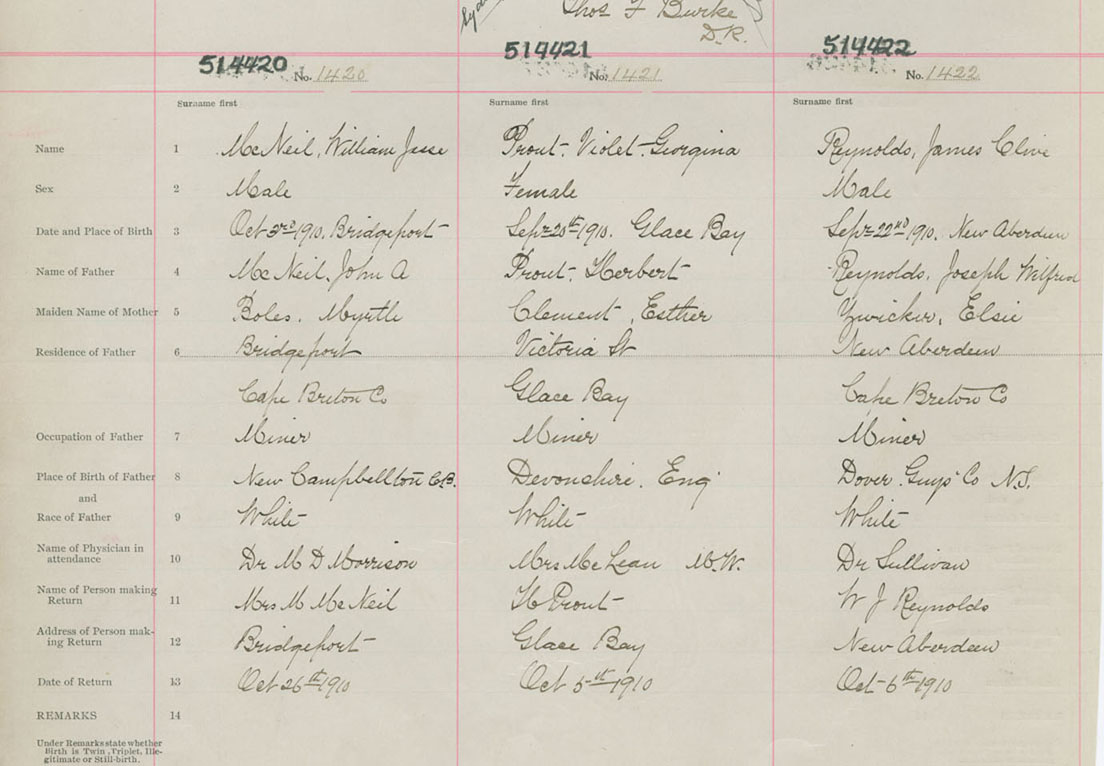 Thos F Burke
D.R.
514420 No. 1420
514421 No. 1421
514422 No. 1422
Surname first Surname first Surname first
Name 1 McNeil, William Jesse Prout. Violet Georgina Reynolds, James Clive
Sex 2 Male Female Male
Date and Place of Birth 3 Oct 3rd 1910. Bridgeport Sept 20th 1910. Glace Bay Sept 22nd 1910. New Aberdeen
Name of Father 4 McNeil, John A Prout. Herbert Reynolds, Joseph Wilfred
Maiden Name of Mother 5 Boles. Myrtle Clement, Esther Zwicker, Elsie
Residence of Father 6 Bridgeport Victoria St New Aberdeen
Cape Breton Co Glace Bay Cape Breton Co
Occupation of Father 7 Miner Miner Miner
Place of Birth of Father 8 New Campbellton C.B. Devonshire. Eng Dover Guys Co N.S.
and
Race of Father 9 White White White
Name of Physician in
attendance 10 Dr M D Morrison Mrs McLean M.W. Dr Sullivan
Name of Person making
Return 11 Mrs M McNeil H Prout W J Reynolds
Address of Person mak-
ing Return 12 Bridgeport Glace Bay New Aberdeen
Date of Return 13 Oct 26th 1910 Oct 5th 1910 Oct 6th 1910
REMARKS 14
Under Remarks state whether
Birth is Twin, Triplet, Ille-
gitimate or Still-birth.